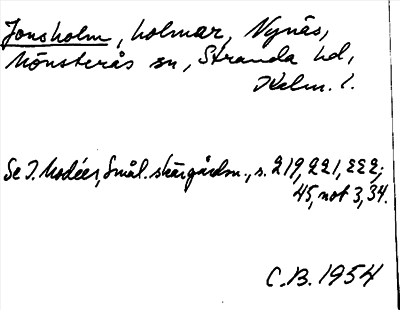 Jonsholm, holmar, Vynäs,
Mönsterås sn, Stranda hd,
Kalm. l.
Se I. Modéer, Smål. skärgårdsn., s. 219, 221, 222;
45, not 3, 34.
C.B. 1954